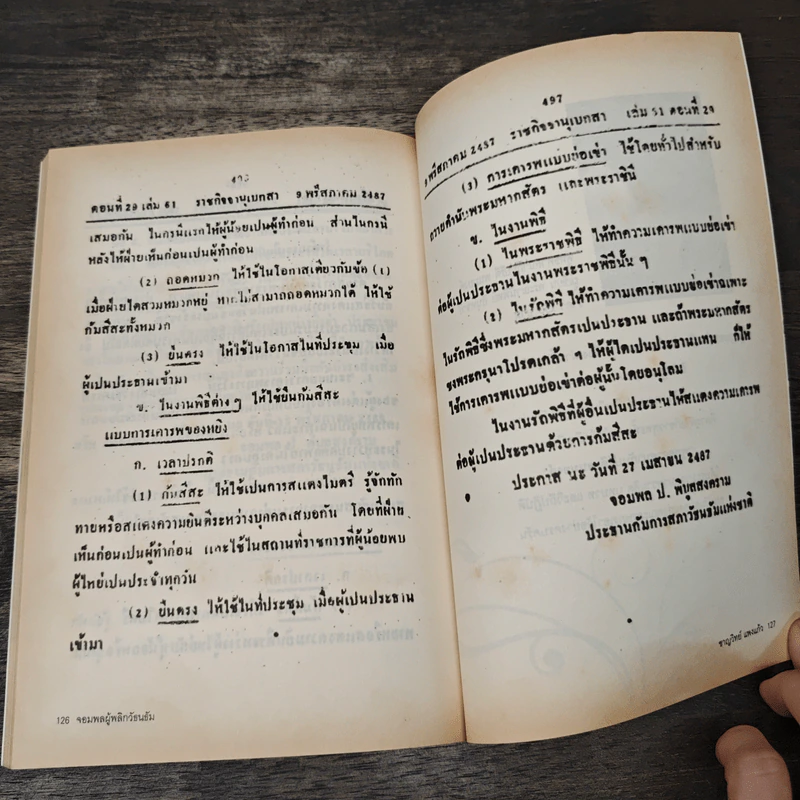 496
ตอนที่ 29 เล่ม 61 ราชกิจจานุเบกสา 9 พรึสภาคม 2487
เสมอกัน ในกรนีแรกให้ผู้น้อยเป็นผู้ทำก่อน ส่วนในกรนี
หลังให้ฝ่ายเห็นก่อนเป็นผู้ทำก่อน
(2) ถอดหมวก ให้ใช้ในโอกาสเดียวกับข้อ (1)
เมื่อฝ่ายใดสวมหมวกหยู่ หากไม่สามาถถอดหมวกได้ ให้ใช้
ก้มสีสะทั้งหมวก
(3) ยืนตรง ให้ใช้ในโอกาสในที่ประชุม เมื่อ
ผู้เป็นประธานเข้ามา
ข. ในงานพิธีต่าง ๆ ให้ใช้ยืนก้มสีสะ
แบบการเคารพของหยิง
ก. เวลาปรกติ
(1) ก้มสีสะ ให้ใช้เป็นการสแดงไมตรี รู้จักทัก
ทายหรือสแดงความยินดีระหว่างบุคคลเสมอกัน โดยที่ฝ่าย
เห็นก่อนเป็นผู้ทำก่อน และใช้ในสถานที่ราชการที่ผู้น้อยพบ
ผู้ไหย่เป็นประจำทุกวัน
(2) ยืนตรง ให้ใช้ในที่ประชุม เมื่อผู้เป็นประธาน
เข้ามา
126 จอมพลผู้พลิกวัธนธัม
497
9 พรึสภาคม 2487 ราชกิจจานุเบกสา เล่ม 61 ตอนที่ 29
(3) การเคารพแบบย่อเข่า ใช้โดยทั่วไปสำหรับ
ถวายคำนับพระมหากสัตร และพระราชินี
ข. ในงานพิธี
(1) ในพระราชพิธี ให้ทำความเคารพแบบย่อเข่า
ต่อผู้เป็นประธานในงานพระราชพิธีนั้น ๆ
(2) ในรัถพิธี ให้ทำความเคารพแบบย่อเข่าฉเพาะ
ในรัถพิธีซึ่งพระมหากสัตรเป็นประธาน และถ้าพระมหากสัตร
ซงพระกรุนาโปรดเกล้า ๆ ให้ผู้ใดเป็นประธานแทน ก็ให้
ใช้การเคารพแบบย่อเข่าต่อผู้นั้นโดยอนุโลม
ในงานรัถพิธีที่ผู้อื่นเป็นประธานให้สแดงความเคารพ
ต่อผู้เป็นประธานด้วยการก้มสีสะ
ประกาส นะ วันที่ 27 เมสายน 2487
จอมพล ป. พิบูลสงคราม
ประธานกัมการสภาวัธนธัมแห่งชาติ
ชาญวิทย์ แพงแก้ว 127